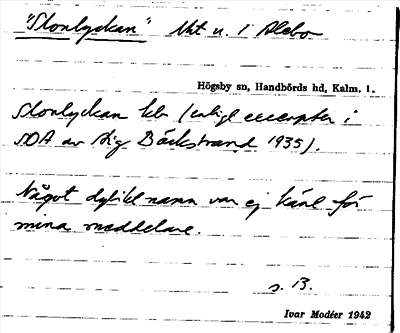 "Storlyckan" Nkt u. i Alebo
Högsby sn, Handbörds hd, Kalm. l.
Storlyckan kb (enligt excerpter i
SOA av Stig Bäckstrand 1935).
Något dylikt namn var ej känt för
mina meddelare.
s. 13.
Ivar Modéer 1942